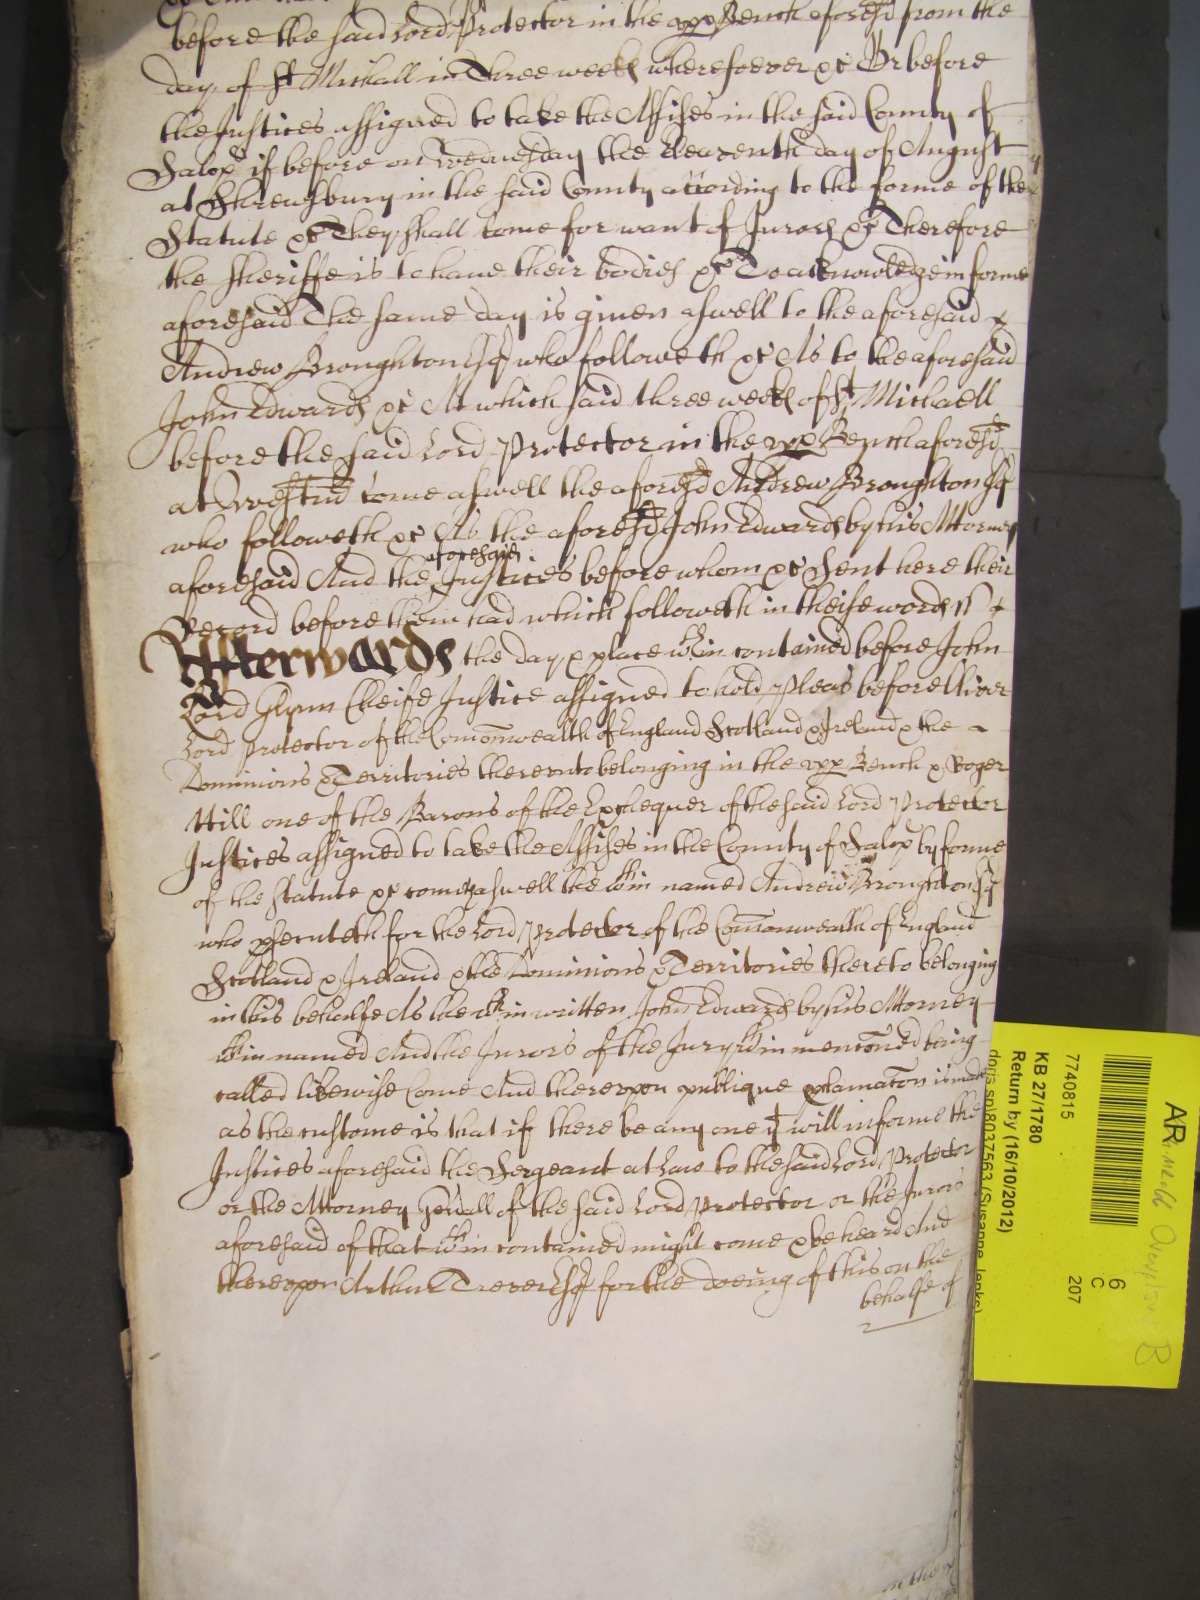 before the said Lord Protector in the upp Bench aforesd from the
day of St Michall in Three weekes wheresoever &c Or before
the Justices assigned to take the Assises in the said County of
Salop if before on Wednesday the Eleaventh day of August
at Shrewsbury in the said County according to the forme of the
Statute &c They shall come for want of Jurors &c Therefore
the Sheriffe is to have their bodies &c To acknowledge in forme
aforesaid The same day is given aswell to the aforesaid
Andrew Broughton Esq who followeth &c As to the aforesaid
John Edwards &c At which said three weekes of St Michaell
before the said Lord Protector in the upp Bench aforesd
at Westmr come aswell the aforesd Andrew Broughton Esq
who followeth &c As the aforesd John Edwards by his Attorney
aforesaid And the aforesaid Justices before whom &c Sent here their
Record before them had which followeth in theise words ss
Afterwards the day & place wthin contained before John
Lord Glynn Cheife Justice assigned to hold Pleas before Oliver
Lord Protector of the Comonwealth of England Scotland & Ireland & the
Dominions & Territories thereunto belonging in the upp Bench & Roger
Hill one of the Barons of the Exchequer of the said Lord Protector
Justices assigned to take the Assises in the County of Salop by forme
of the Statute &c come aswell the wthin named Andrew Broughton Esq
who psecuteth for the Lord Protector of the Comonwealth of England
Scotland & Ireland & the Dominions & Territories thereto belonging
in this behalfe As the wthin written John Edwards by his Attorney
wthin named And the Jurors of the Jury wthin menconed being
called likewise Come And thereupon publique pclamacon is made
as the custome is that if there be any one yt will informe the
Justices aforesaid the Sergeant at Law to the said Lord Protector
or the Attorney Genall of the said Lord Protector or the Jurors
aforesaid of that wthin contained might come & be heard And
thereupon Arthur Trever Esq for the doeing of this on the
behalfe of
7740815
207
KB 27/1780
C
6
Return by (16/10/2012)
AR
B